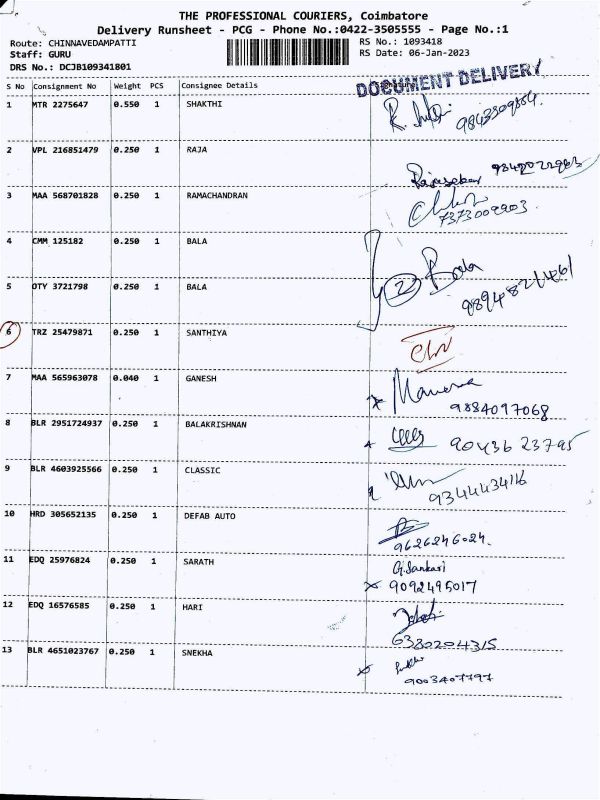 THE PROFESSIONAL COURIERS, Coimbatore
Delivery Runsheet - PCG - Phone No.:0422-3505555 - Page No.:1
Route: CHINNAVEDAMPATTI
RS No.: 1093418
Staff: GURU
RS Date: 06-Jan-2023
DRS No.: DCJB109341801
DOCUMENT DELIVERY
S No Consignment No Weight PCS Consignee Details
1 MTR 2275647 0.550 1 SHAKTHI
2 VPL 216851479 0.250 1 RAJA
Rajasekar
3 MAA 568701828 0.250 1 RAMACHANDRAN
7373009903
4 CMM 125182 0.250 1 BALA
2 Bala
5 OTY 3721798 0.250 1 BALA
9894821461
6 TRZ 25479871 0.250 1 SANTHIYA
7 MAA 565963078 0.040 1 GANESH
9884097068
8 BLR 2951724937 0.250 1 BALAKRISHNAN
90436 23795
9 BLR 4603925566 0.250 1 CLASSIC
9344434116
10 HRD 305652135 0.250 1 DEFAB AUTO
9626246024
11 EDQ 25976824 0.250 1 SARATH
G. Sankari
9092495017
12 EDQ 16576585 0.250 1 HARI
6380204315
13 BLR 4651023767 0.250 1 SNEKHA
9003407797